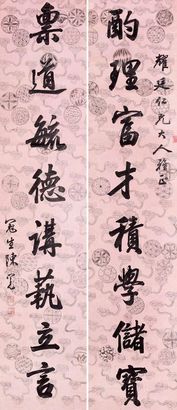 耀廷仁兄大人雅正
酌理富才積學儲寶
稟道毓德講藝立言
冠生陳冕